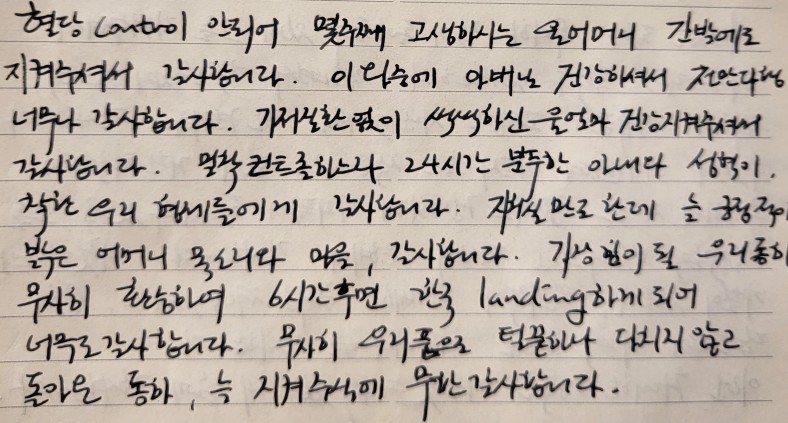 혈당 control 안되어 몇주째 고생하시는 울어머니 간밤에도
지켜주셔서 감사합니다. 이 와중에 아버님 건강하셔서 천만다행
너무나 감사합니다. 기저질환 없이 씩씩하신 울엄마 건강지켜주셔서
감사합니다. 혈당 컨트롤하느라 24시간 분투한 아내와 성혁이.
착한 우리 형제들에게 감사합니다. 만로 한데 늘 긍정적이
밝은 어머니 목소리와 마음, 감사합니다. 가장 힘이 될 우리동하
무사히 환승하여 6시간 후면 한국 landing하게 되어
너무도 감사합니다. 무사히 우리품으로 털끝하나 다치지 않고
돌아온 동하, 늘 지켜주심에 무한감사합니다.